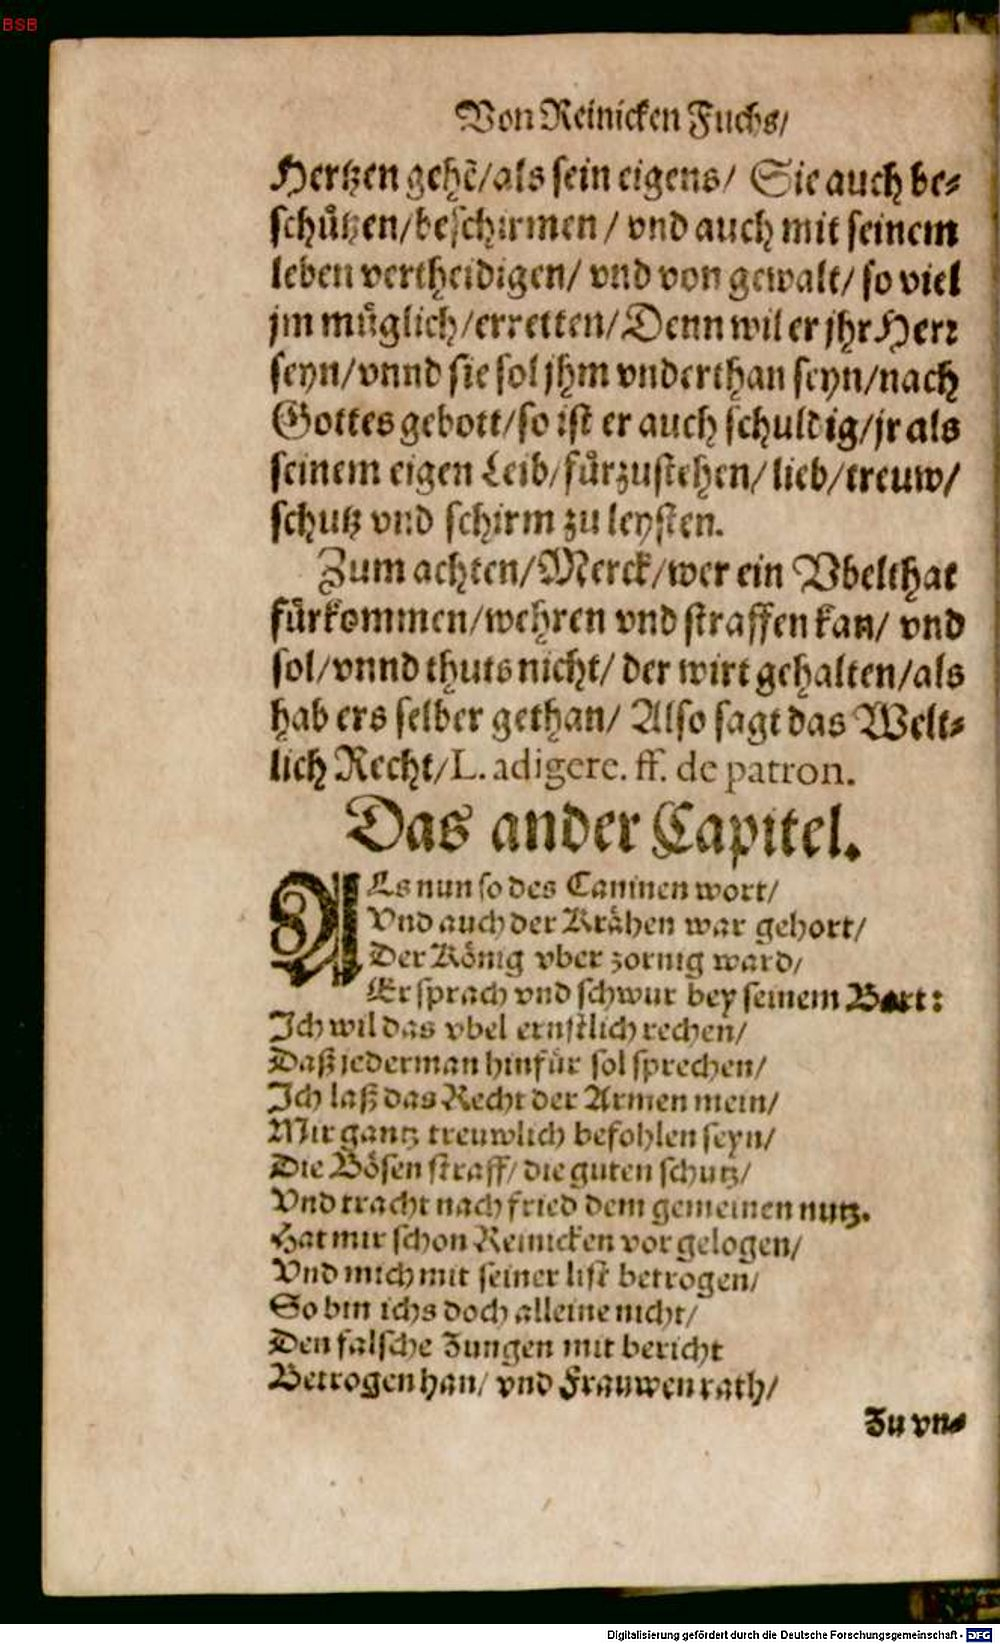 BSB
Von Reinicken Fuchs/
Hertzen gehẽ/als sein eigens/ Sie auch be-
schützen/beschirmen / vnd auch mit seinem
leben vertheidigen/ vnd von gewalt/ so viel
jm müglich/erretten/Denn wil er jhr Herr
seyn/vnnd sie sol jhm vnderthan seyn/nach
Gottes gebott/so ist er auch schuldig/jr als
seinem eigen Leib/fürzustehen/ lieb/treuw/
schutz vnd schirm zu leysten.
Zum achten/Merck/wer ein Vbelthat
fürkommen/wehren vnd straffen kan/ vnd
sol/vnnd thuts nicht/ der wirt gehalten/als
hab ers selber gethan/ Also sagt das Welt-
lich Recht/L. adigere. ff. de patron.
Das ander Capitel.
ALs nun so des Caninen wort/
Vnd auch der Krähen war gehort/
Der König vber zornig ward/
Er sprach vnd schwur bey seinem Bart:
Ich wil das vbel ernstlich rechen/
Daß jederman hinfür sol sprechen/
Ich laß das Recht der Armen mein/
Mir gantz treuwlich befohlen seyn/
Die Bösen straff/ die guten schutz/
Vnd tracht nach fried dem gemeinen nutz.
Hat mir schon Reinicken vor gelogen/
Vnd mich mit seiner list betrogen/
So bin ichs doch alleine nicht/
Den falsche Zungen mit bericht
Betrogen han/ vnd Frauwen rath/
Zu vn-
Digitalisierung gefördert durch die Deutsche Forschungsgemeinschaft - DFG